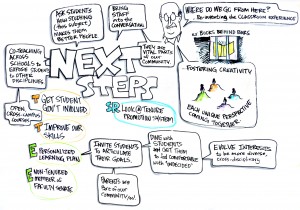 ASK STUDENTS
HOW STUDYING
(this subject)
MAKES THEM
BETTER PEOPLE
BRING
STAFF
INTO the
CONVERSATION
THEY ARE
VITAL PARTS
OF OUR
COMMUNITY.
WHERE DO WE GO FROM HERE?
Re-inventing the CLASSROOM EXPERIENCE
BODIES BEHIND BARS
FOSTERING CREATIVITY
EACH UNIQUE PERSPECTIVE
COMING TOGETHER
CO-TEACHING
ACROSS
SCHOOLS to
EXPOSE STUDENTS
TO OTHER
DISCIPLINES
OPEN
CROSS-CAMPUS
COURSES
NEXT
STEPS
T GET STUDENT
GOV'T INVOLVED
T IMPROVE OUR
SKILLS
E PERSONALIZED
LEARNING PLAN
E NON-TENURED
MEMBER of
FACULTY SENATE
SR LOOK @ TENURE
PROMOTION SYSTEM
INVITE STUDENTS
TO ARTICULATE
THEIR GOALS.
PARENTS are
Part of our community/too!
DINE with
STUDENTS
and GET THEM
to feel comfortable
with "UNDECIDED"
EVOLVE INTERESTS
to be more diverse,
cross-disciplinary